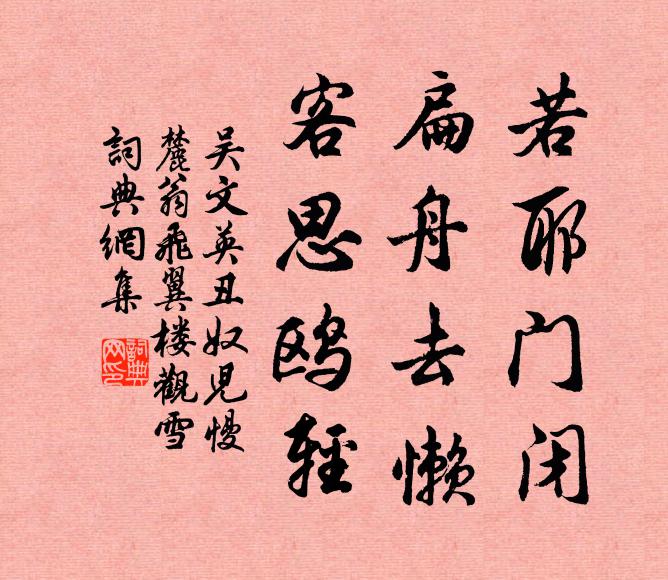 若耶门闭
扁舟去懒
客思鸥轻
吴文英丑奴儿慢
麓翁飛翼楼觀雪
詞典網集
詞典
网印